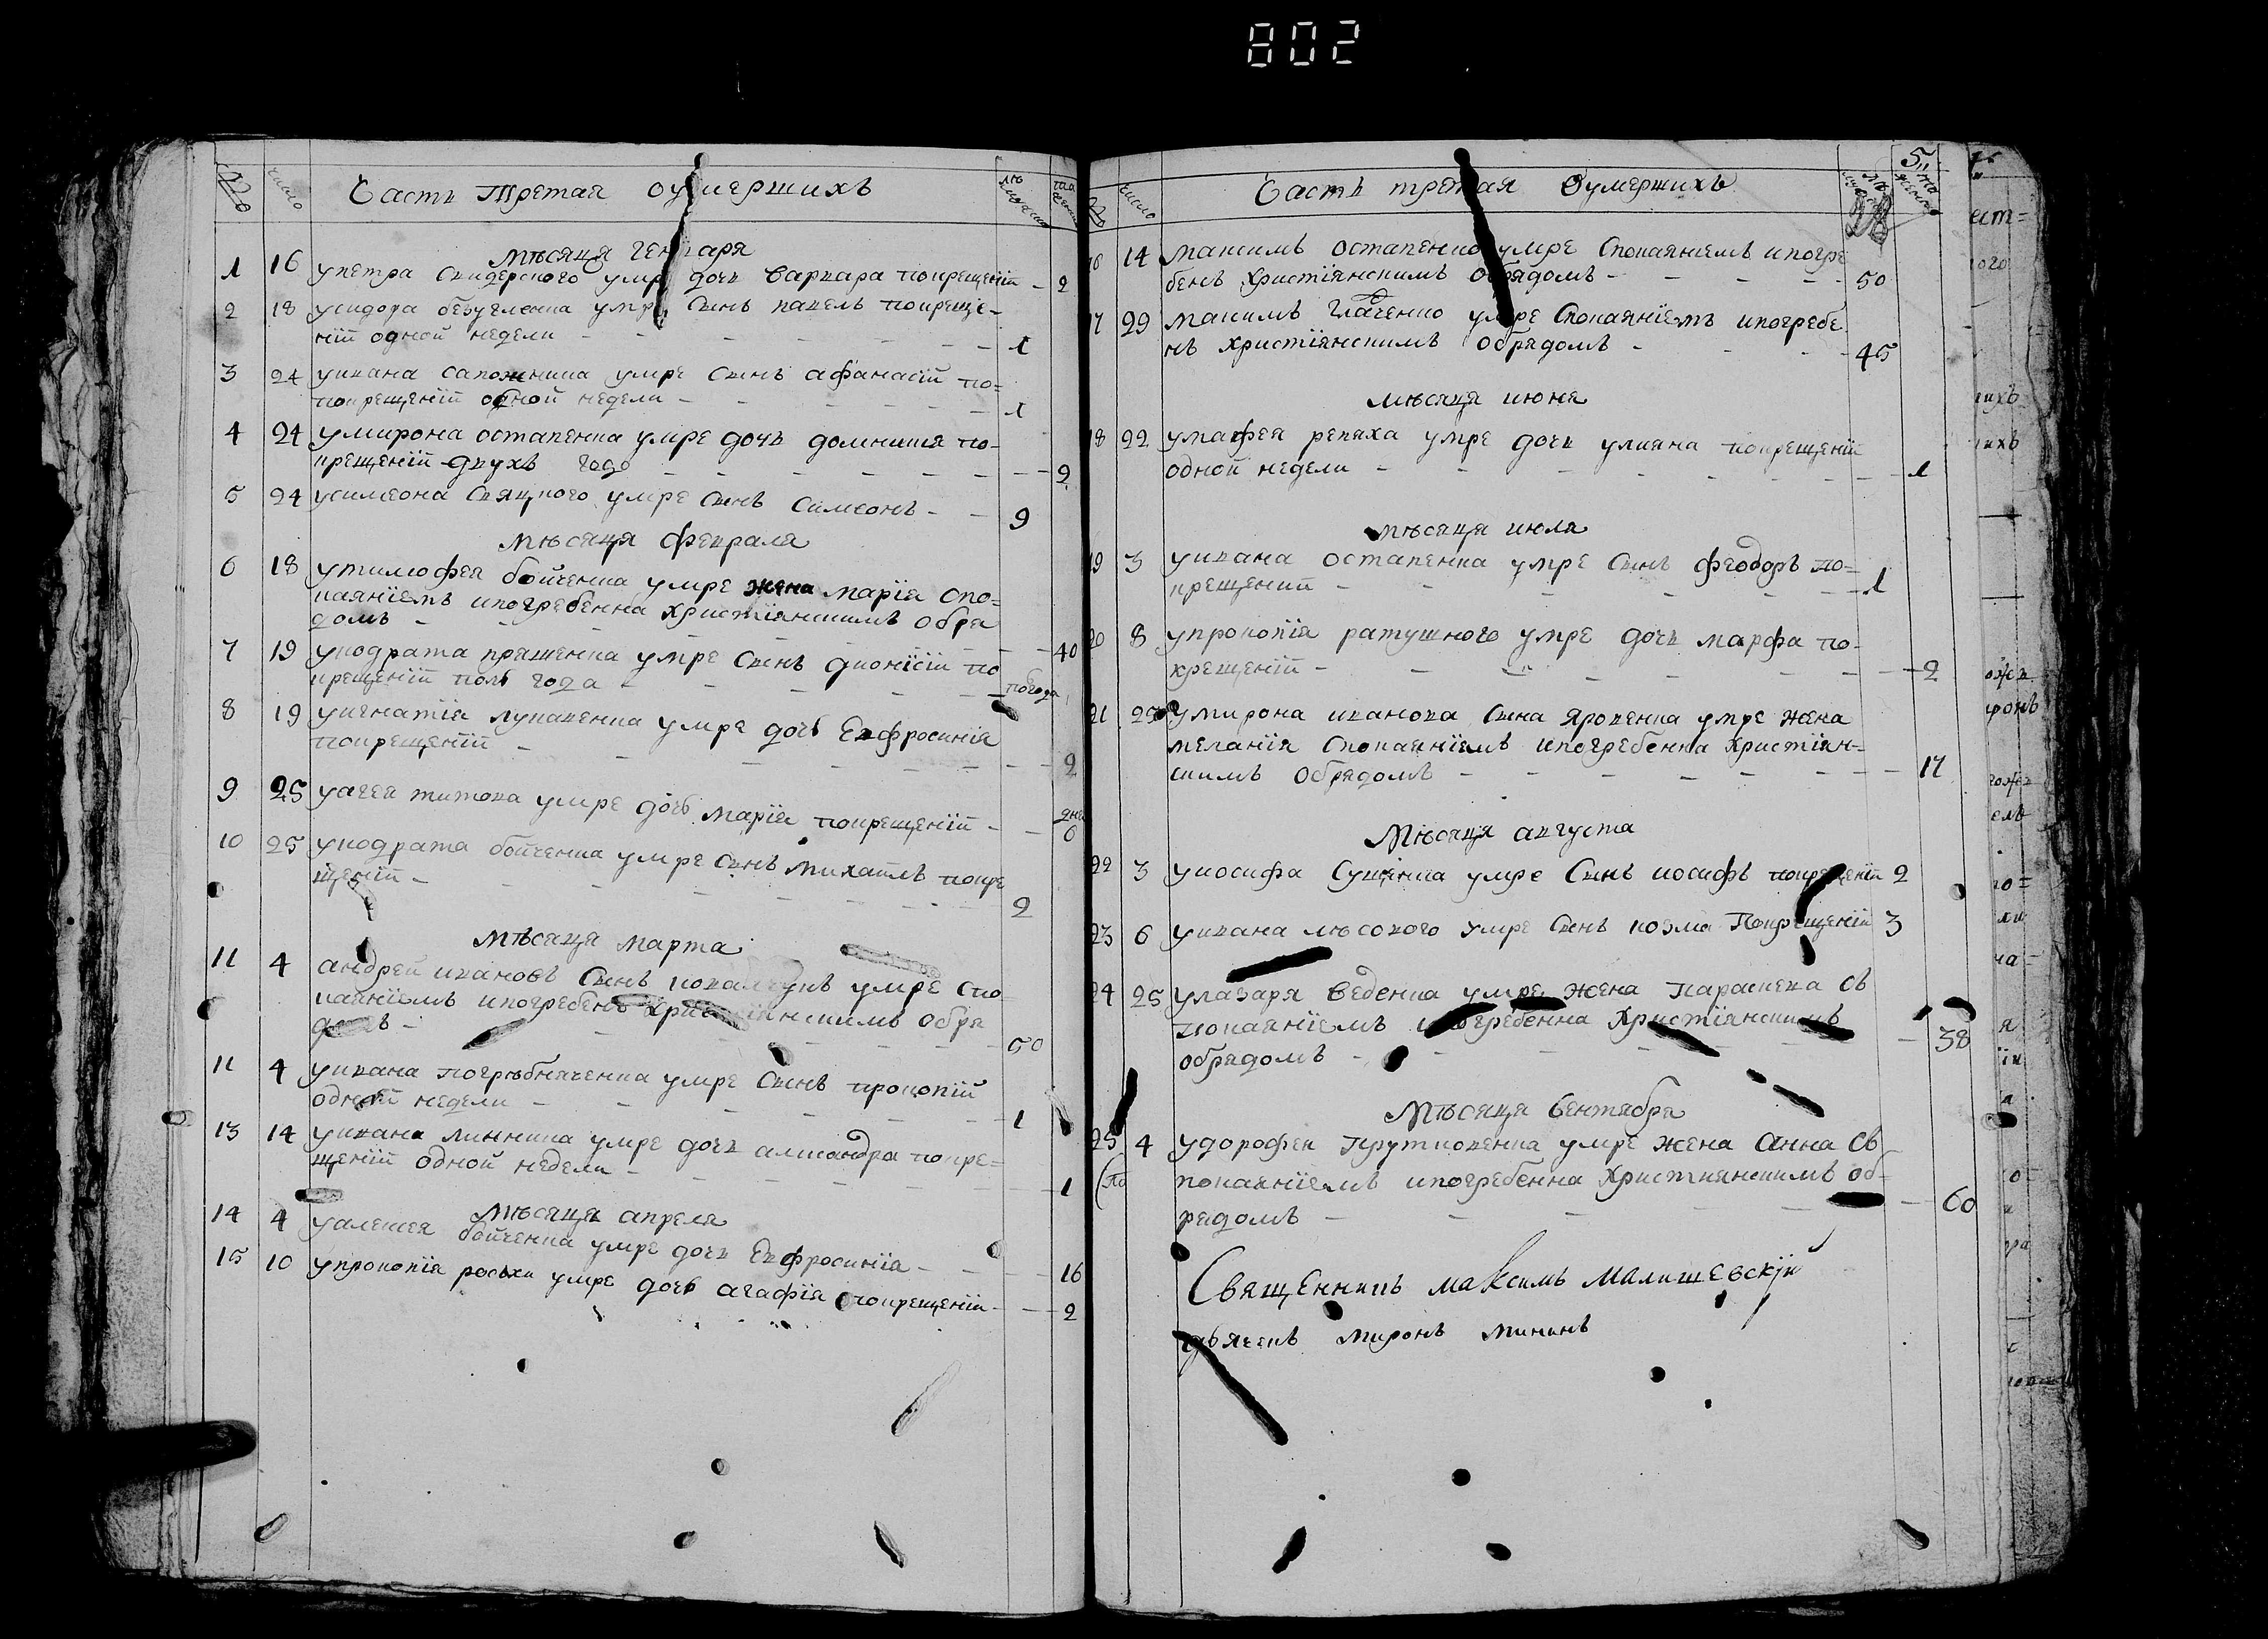 802
№
число
Часть Третая оумершихъ
Мѣсяця Генъаря
1 16 упетра Свидерского умре дочь варвара покрещеніи - 2
2 18 усидора безуглова умре Сынъ павелъ покреще-
ніи одной недели - 1
3 24 уивана сапожника умре Сынъ афанасій по=
покрещеніи одной недели - 1
4 24 умирона остапенка умре дочь домникия по-
крещеніи двухъ годо - 2
5 24 усимеона Свяцкого умре Сынъ Симеонъ - 9
Мѣсяця февраля
6 18 утимофея бойченка умре жена марія Спо=
каяніемъ ипогребенна христіянскимъ обра
домъ - 40
7 19 укодрата пряженка умре Сынъ дионісій по
крещеніи полъ года - погода
8 19 уигнатія лукаченка умре дочъ Евфросинія
покрещеніи - 2
9 25 уагея титова умре дочъ марія покрещеніи - дне 6
10 25 укодрата бойченка умре Сынъ Михаилъ покре
щеніи - 2
Мѣсяця марта
11 4 андрей ивановъ Сынъ умре Спо
каяніемъ ипогребенъ христіянскимъ обра
домъ - 50
11 4 уивана погрѣбняченка умре Сынъ прокопій
одной недели - 1
13 14 уивана линника умре дочь алисандра покре=
щеніи одной недели - 1
Мѣсяця апреля
14 4 уалексея бойченка умре дочь Евфросинія - 16
15 10 упрокопія умре дочъ агафія покрещеніи - 2
№
число
Часть третая Оумершихъ
5
16 14 Максимъ остапенко умре Спокаяніемъ ипогре
бенъ христіянскимъ обрядомъ - 50
17 29 Макимъ Глаченко умре Спокаяніемъ ипогребе
нъ христіянскимъ обрядомъ - 45
мѣсяця июня
18 22 умафея репяха умре дочь улияна покрещеніи
одной недели - 1
мѣсяця июля
19 3 уивана остапенка умре Сынъ феодоръ по=
крещении - 1
20 8 упрокопія ратушного умре дочь марфа по-
крещеніи - 2
21 25 умирона иванова Сына яровенка умре жена
меланія Спокаяніемъ ипогребенна христіян-
скимъ обрядомъ - 17
Мѣсяця августа
22 3 уиосифа умре Сынъ иосифъ покрещеніи 2
23 6 уивана лѣсового умре Сынъ козма Покрещеніи 3
24 25 улазаря веденка умре жена параскева Съ
покаяніемъ ипогребенна Христіянскимъ
обрядомъ - 38
Мѣсяця Сентября
25 4 удорофея Крутковенка умре жена Анна Съ
покаяніемъ ипогребенна Християнскимъ об-
рядомъ - 60
Священникъ максимъ Малишевскій
дьячекъ миронъ мининъ